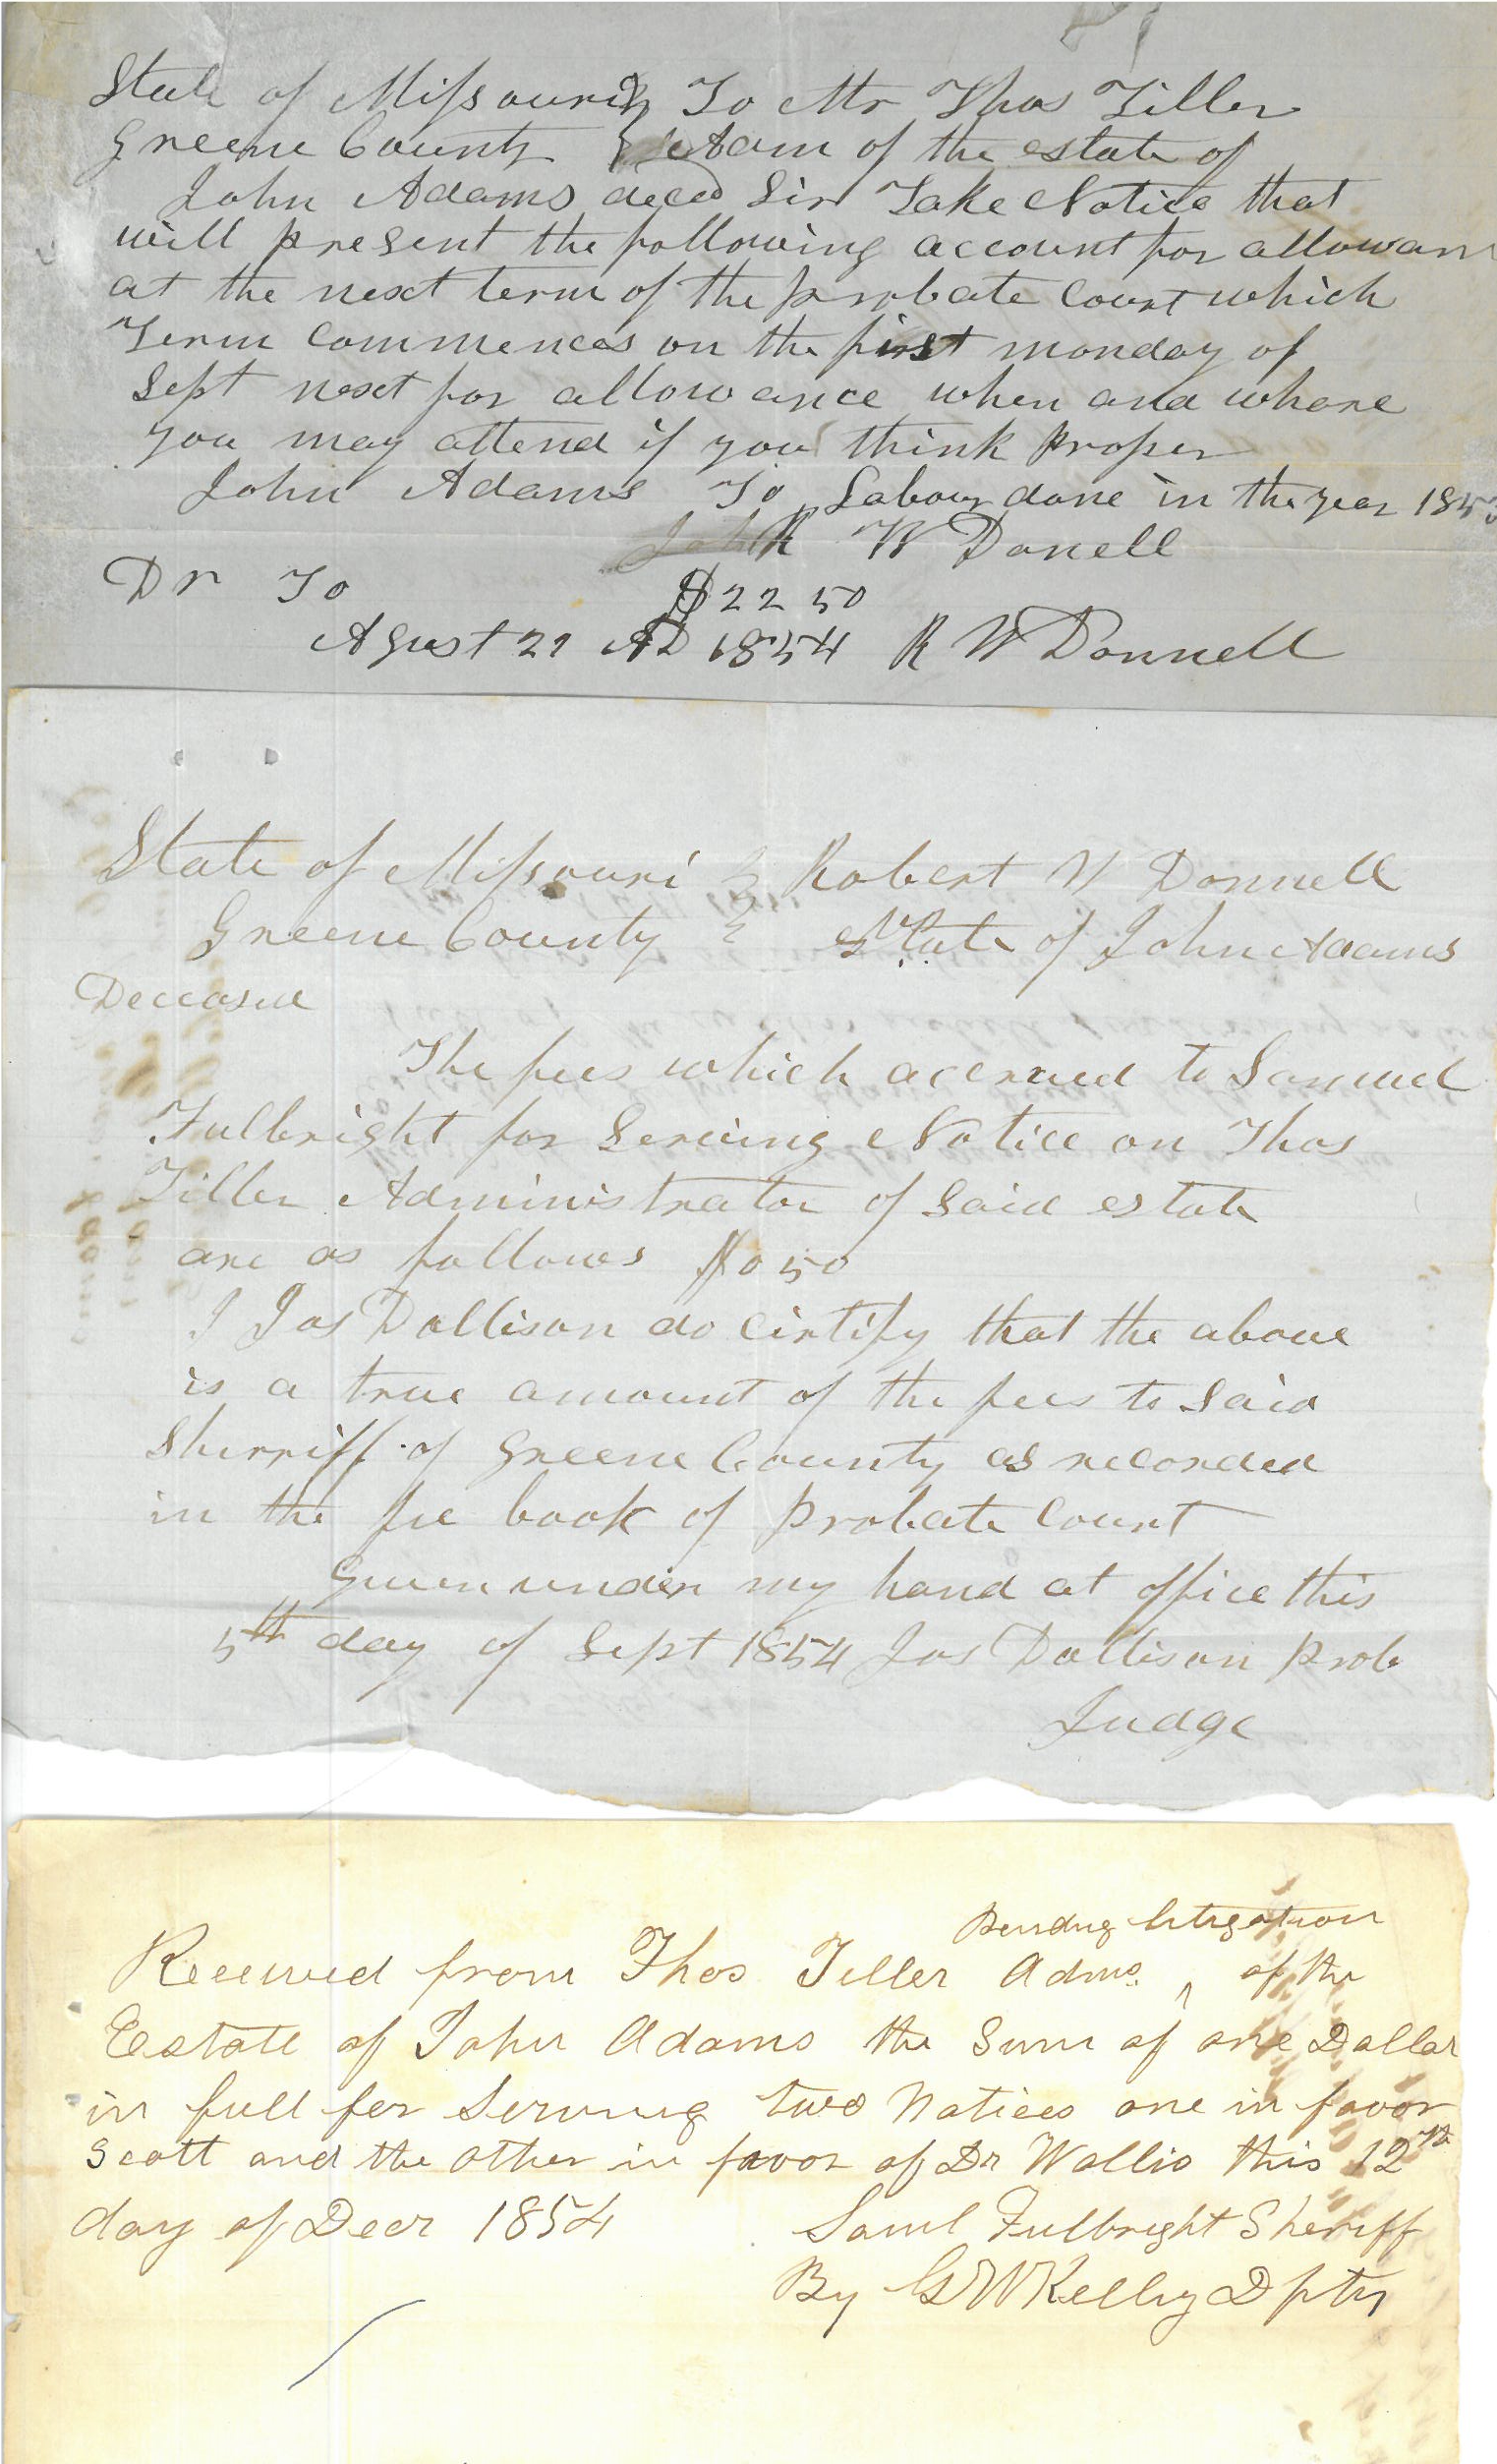 State of Missouri } To Mr Thos Tiller
Greene County } Adam of the estate of
John Adams decd Sir Take Notice that
will present the following account for allowan
at the next term of the probate Court which
Term Commences on the first monday of
Sept next for allowance when and whare
you may attend if you think proper
John Adams To Labour done in the year 185
R W Donell
Dr To $22 50
Agust 21 AD 1854 R W Donnell
State of Missouri } Robert W Donnell
Greene County } vs
estate of John Adams
Deceased
The fees which accrued to Samuel
Fulbright for Serving Notice on Thos
Tiller Administrator of Said estate
are as follows $0 50
I Jas Dollison do Certify that the above
is a true amount of the fees to Said
Sherriff of Greene County as recorded
in the fee book of probate Court
Given under my hand at office this
5th day of Sept 1854 Jas Dollison Prob
Judge
Pending litigation
Received from Thos Tiller Admr. ^ of the
Estate of John Adams the Sum of one Dollar
in full for Serving two Notices one in favor
Scott and the other in favor of Dr Wallis this 12th
day of Decr 1854 Saml Fulbright Sheriff
By G W Kelley Dpty